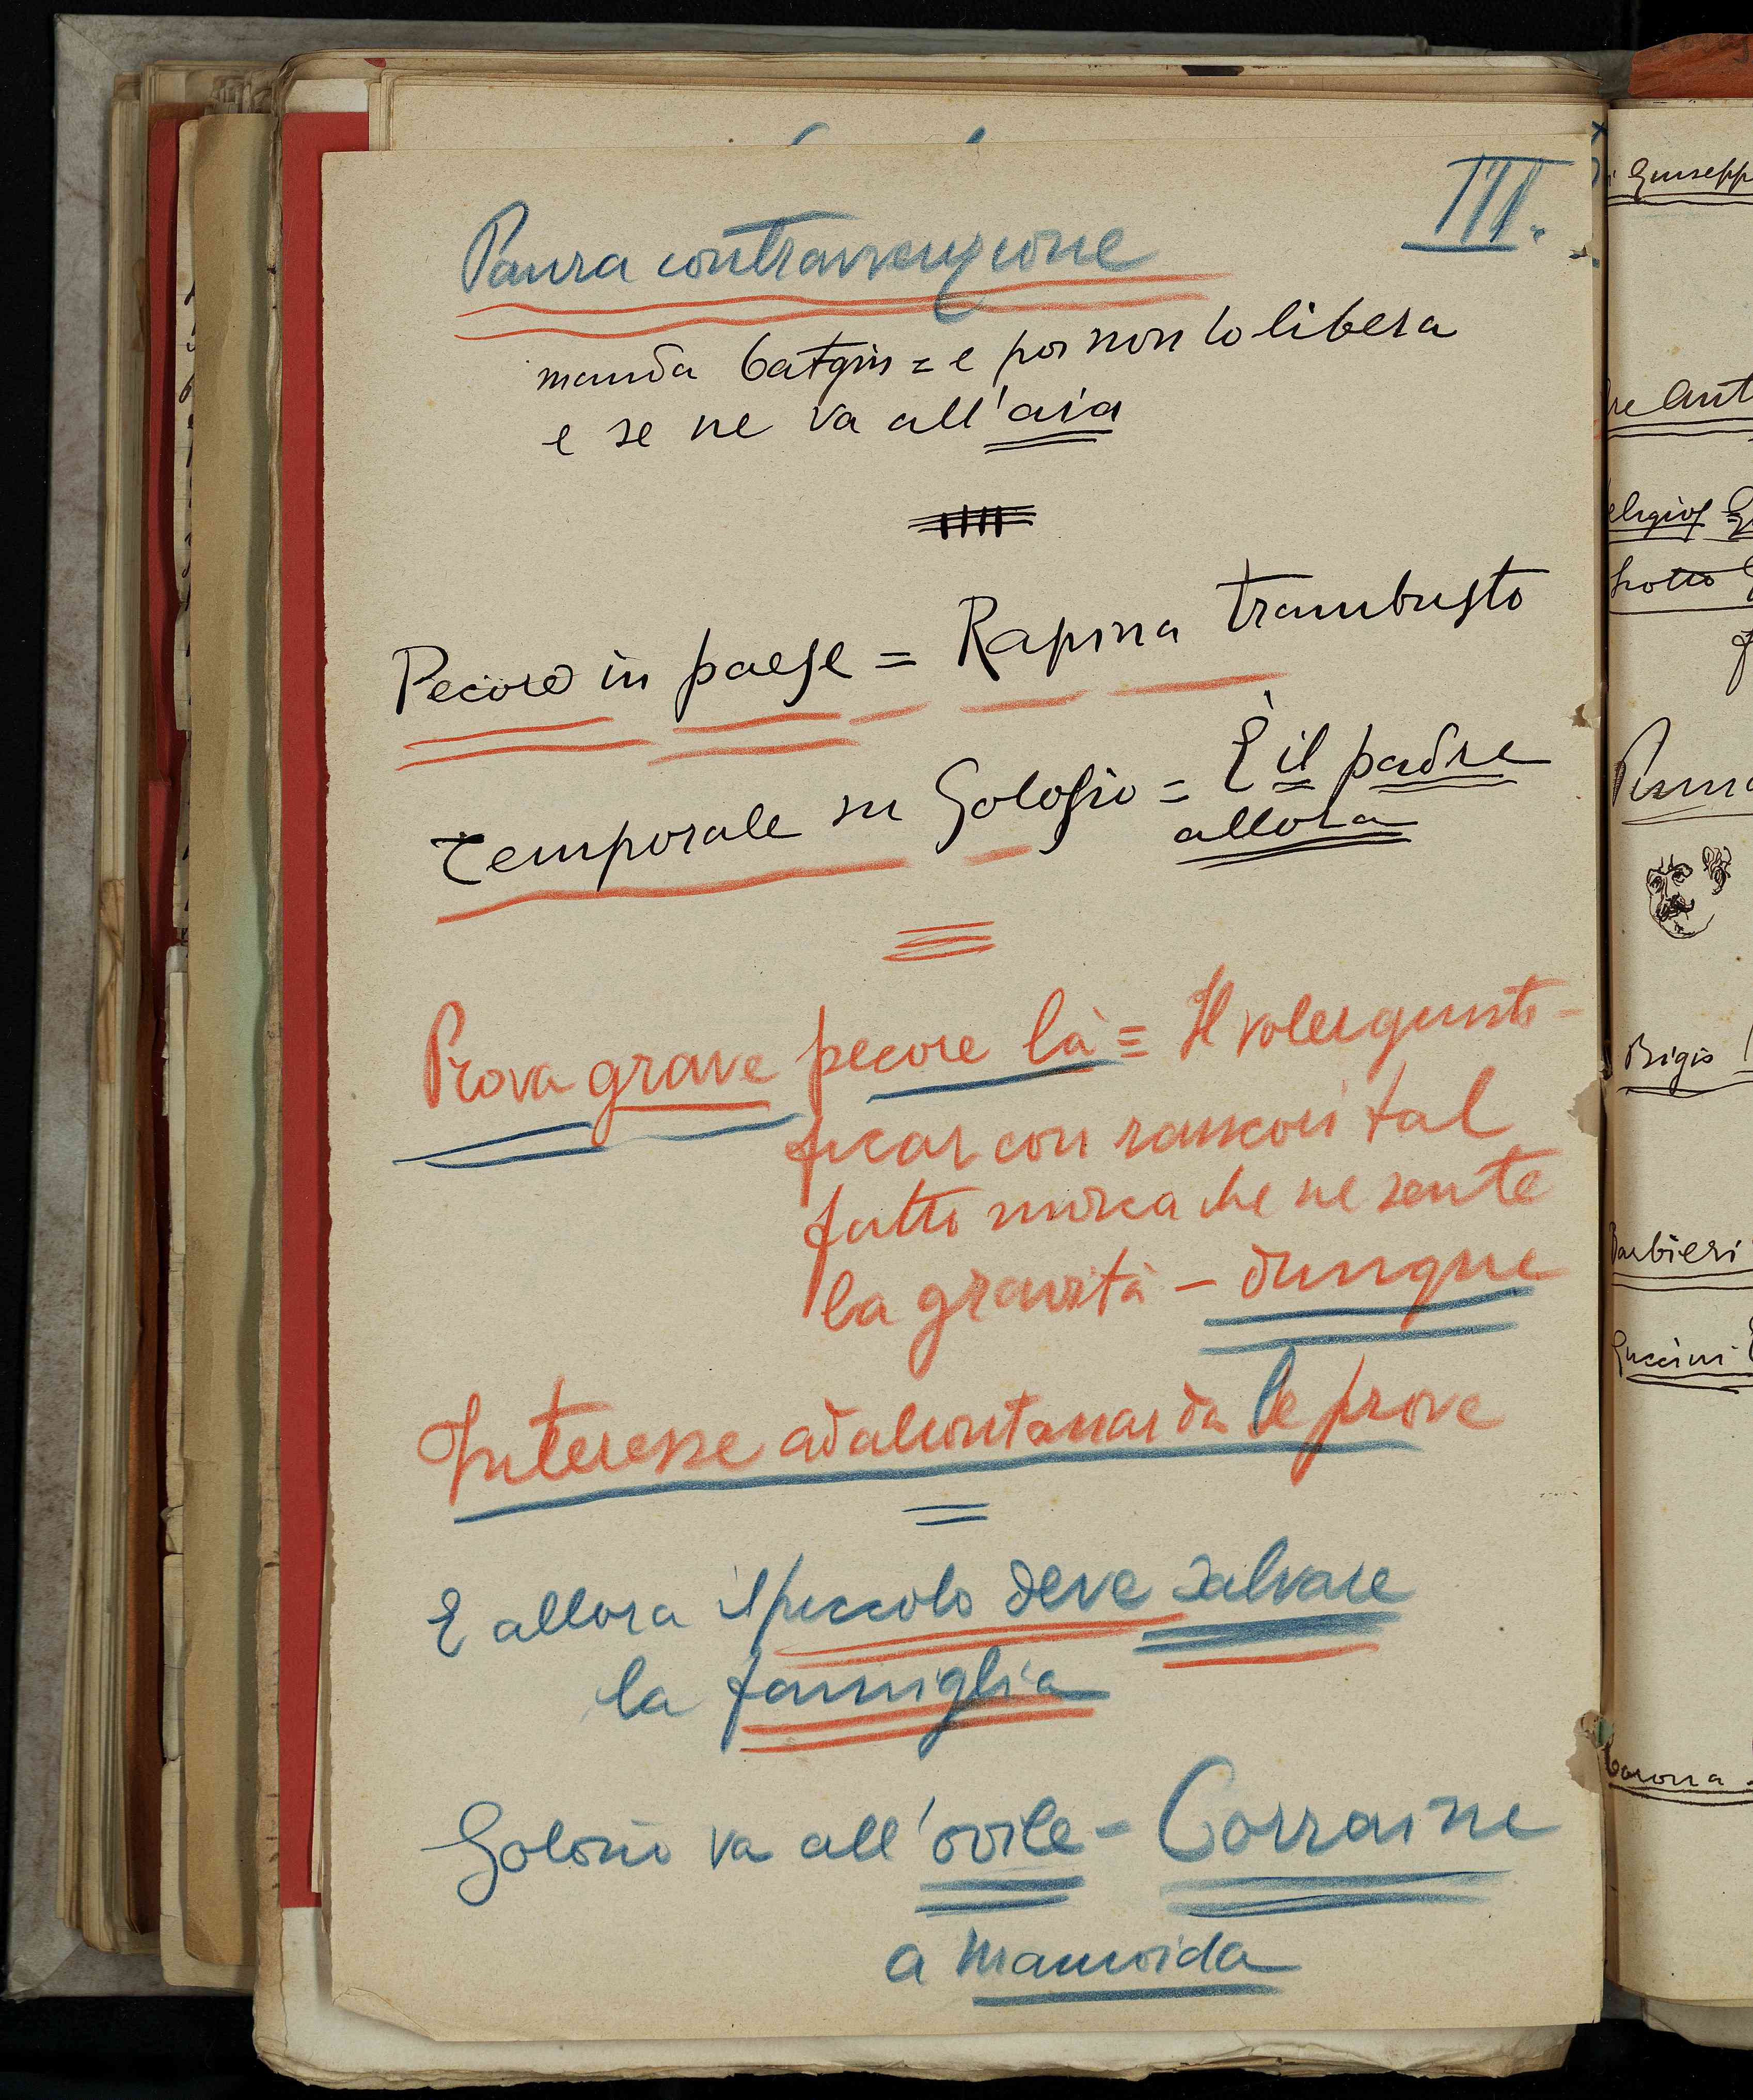 III.
Paura contravvenzione
manda = e poi non lo libera
e se ne va all'aia
Pecore in paese = Rapina trambusto
Temporale su Golosio = È il padre
allora
Prova grave pecore là = Il voler giusti-
ficar con rancori tal
fatto mostra che ne sente
la gravità - dunque
Interesse ad allontanar da le prove
E allora il piccolo deve salvare
la famiglia
Golosio va all'ovile - Corraine
a Mamoida
Giusepp
Ant
Brigis
Barbieri
Guccini
Corona